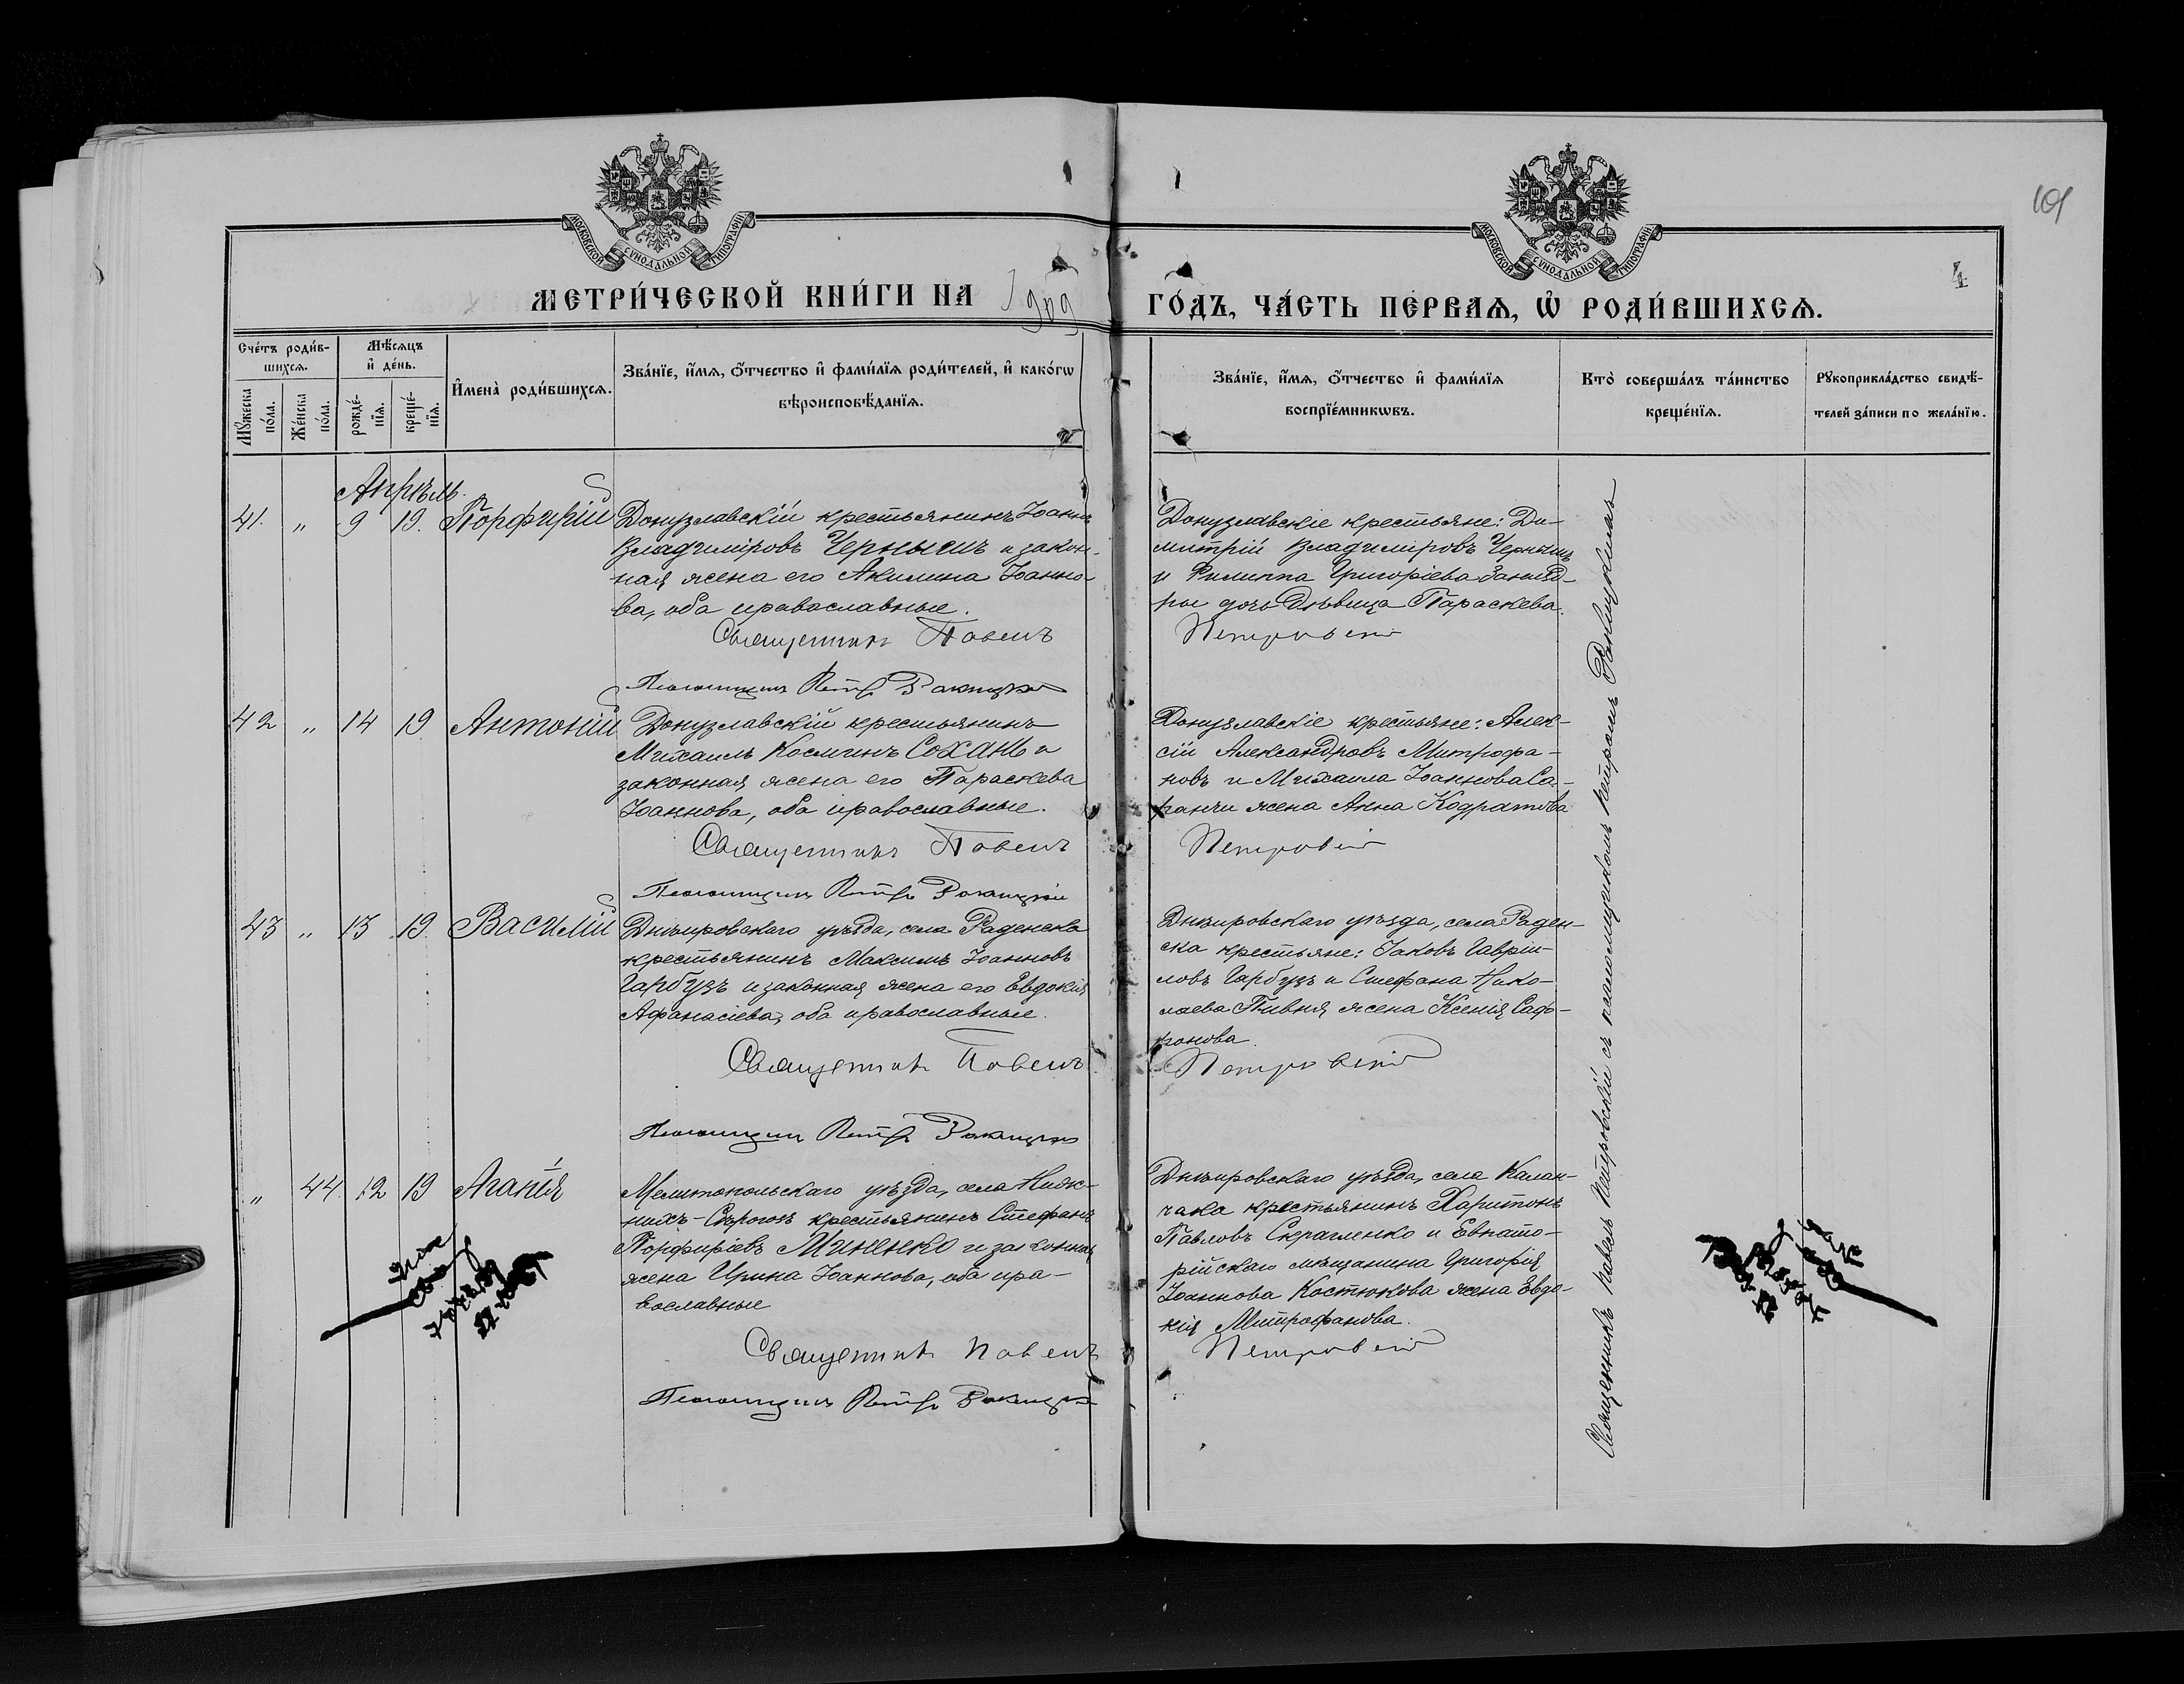 МОСКОВСКОЙ СѴНОДАЛЬНОЙ ТИПОГРАФІИ
МОСКОВСКОЙ СѴНОДАЛЬНОЙ ТИПОГРАФІИ
101
4
МЕТРИ́ЧЕСКОЙ КНИ́ГИ НА 1909
ГО́ДЪ, ЧА́СТЬ ПЕ́РВАѦ, Ѡ҆ РОДИ́ВШИХСѦ.
Сче́тъ роди́в-
шихсѧ.
Мꙋжеска по́ла.
Же́нска по́ла.
Мѣ́сѧцъ
и҆ де́нь.
рожде́-
нїѧ.
креще́-
нїѧ.
И҆мена̀ роди́вшихсѧ.
Зва́нїе, и҆́мѧ, ѻ҆́тчество и҆ фами́лїѧ роди́телей, и҆ како́гѡ
вѣроисповѣ́данїѧ.
Зва́нїе, и҆́мѧ, ѻ҆́тчество и҆ фами́лїѧ
воспрїе́мникѡвъ.
Кто̀ соверша́лъ та́инство
креще́нїѧ.
Рꙋкоприкла́дство свидѣ́-
телей за́писи по жела́нїю.
Апрѣль.
41. „ 9 19. Порфирій
Донузлавскій крестьянинъ Іоаннъ
Владиміровъ Чернышъ и закон-
ная жена его Акилина Іоанно-
ва, оба православные.
Священникъ Павелъ
Псаломщикъ Петръ Ракицкій
Донузлавскіе крестьяне: Ди-
митрій Владиміровъ Чернышъ
и Филиппа Григоріева
дочь дѣвица Параскева.
Петровскій
42 „ 14 19 Антоній
Донузлавскій крестьянинъ
Михаилъ Косминъ Сохань и
законная жена его Параскева
Іоаннова, оба православные.
Священникъ Павелъ
Псаломщикъ Петръ Ракицкій
Донузлавскіе крестьяне: Алек-
сій Александровъ Митрофа-
новъ и Михаила Іоаннова Са-
жена Анна Кодратова
Петровскій
43 „ 13 19. Василій
Днѣпровскаго уѣзда, села Раденска
крестьянинъ Максимъ Іоанновъ
Гарбузъ и законная жена его Евдокія
Афанасіева, оба православные.
Священникъ Павелъ
Псаломщикъ Петръ Ракицкій
Днѣпровскаго уѣзда, села Раден-
ска крестьяне: Іаковъ Гавріи-
ловъ Гарбузъ и Стефана Нико-
лаева Пивня жена Ксенія Саф-
ронова.
Петровскій
„ 44. 12 19 Агапія
Мелитопольскаго уѣзда, села Ниж-
нихъ-Сѣрогозъ крестьянинъ Стефанъ
Порфиріевъ Миненко и законная
жена Ирина Іоаннова, оба пра-
вославные
Священникъ Павелъ
Псаломщикъ Петръ Ракицкій
Днѣпровскаго уѣзда, села Калан-
чака крестьянинъ Харитонъ
Павловъ и Евпато-
рійскаго мѣщанина Григорія
Іоаннова Костюкова жена Евдо-
кія Митрофанова.
Петровскій
Священникъ Павелъ Петровскій съ псаломщикомъ Петромъ Ракицкимъ